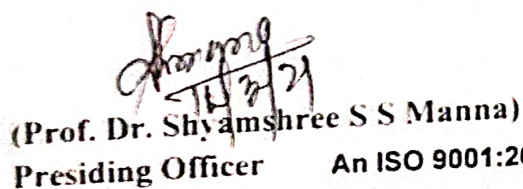 (Prof. Dr. Shyamshree S S Manna)
Presiding Officer An ISO 9001:20